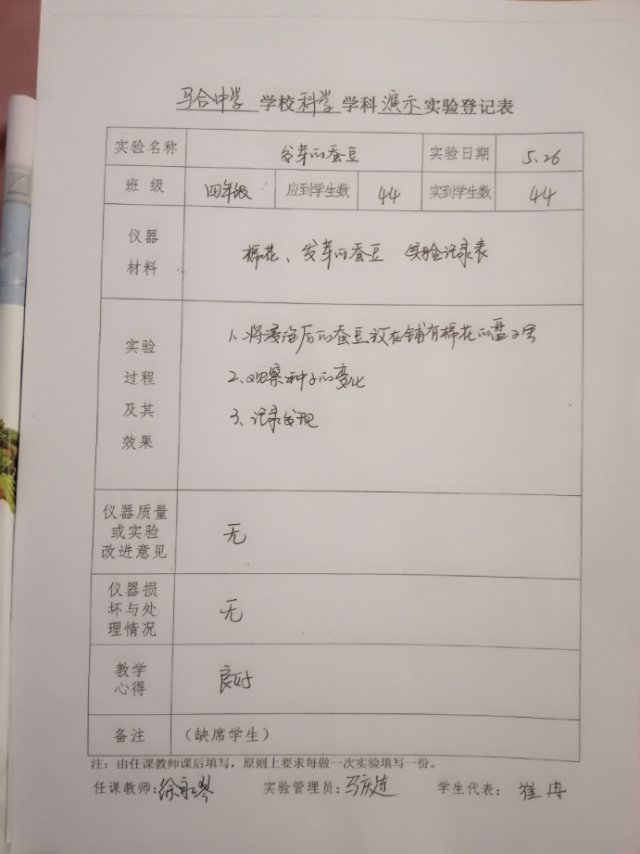 马合中学 学校 科学 学科 演示 实验登记表
实验名称 发芽的蚕豆 实验日期 5.26
班 级 四年级 应到学生数 44 实到学生数 44
仪器
材料
棉花、发芽的蚕豆 实验记录表
实验
过程
及其
效果
1、将浸泡后的蚕豆放在铺有棉花的盘子里
2、观察种子的变化
3、记录发现
仪器质量
或实验
改进意见
无
仪器损
坏与处
理情况
无
教学
心得
良好
备注 (缺席学生)
注：由任课教师课后填写，原则上要求每做一次实验填写一份。
任课教师:徐 实验管理员:马 学生代表: 崔冉